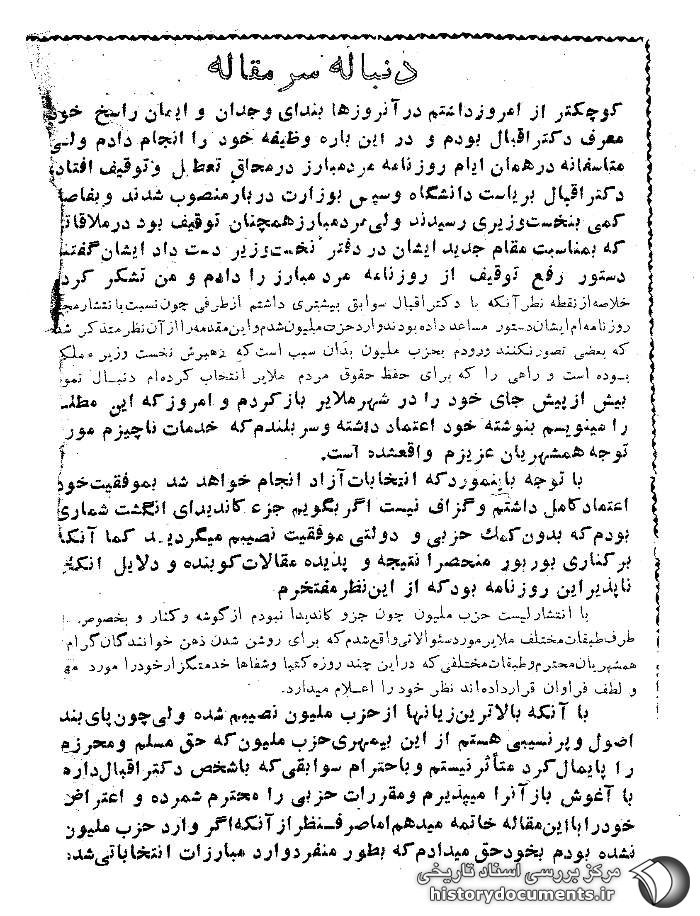 دنباله سرمقاله
کوچکتر از امروز داشتم در آنروزها بندای وجدان و ایمان راسخ خود
معرف دکتر اقبال بودم و در این باره وظیفه خود را انجام دادم ولی
متاسفانه در همان ایام روزنامه مردمبارز در محاق تعطیل و توقیف افتاد
دکتر اقبال بریاست دانشگاه وسپس بوزارت دربار منصوب شدند و بفاصله
کمی بنخست‌وزیری رسیدند ولی مردمبارز همچنان توقیف بود در ملاقاتی
که بمناسبت مقام جدید ایشان در دفتر نخست‌وزیر دست داد ایشان گفتند
دستور رفع توقیف از روزنامه مردمبارز را دادم و من تشکر کردم
خلاصه از نقطه نظر آنکه با دکتر اقبال سوابق بیشتری داشتم از طرفی چون نسبت بانتشار مجدد
روزنامه‌ام ایشان دستور مساعد داده بودند وارد حزب ملیون شدم و این مقدمه را از آن نظر متذکر شدم
که بعضی تصور نکنند ورودم بحزب ملیون بدان سبب است که رهبرش نخست وزیر مملکت
بوده است و راهی را که برای حفظ حقوق مردم ملایر انتخاب کرده‌ام دنبال نموده
بیش از پیش جای خود را در شهر ملایر باز کردم و امروز که این مطلب
را مینویسم بنوشته خود اعتماد داشته و سربلندم که خدمات ناچیزم مورد
توجه همشهریان عزیزم واقعشده است.
با توجه باینمورد که انتخابات آزاد انجام خواهد شد بموفقیت خود
اعتماد کامل داشتم و گزاف نیست اگر بگویم جزء کاندیدای انگشت شماری
بودم که بدون کمك حزبی و دولتی موفقیت نصیبم میگردید کما آنکه
برکناری پورپور منحصرا نتیجه و پدیده مقالات کوبنده و دلایل انکار
ناپذیر این روزنامه بود که از این نظر مفتخرم
با انتشار لیست حزب ملیون چون جزو کاندیدا نبودم از گوشه و کنار و بخصوص از
طرف طبقات مختلف ملایر مورد سئوالاتی واقع شدم که برای روشن شدن ذهن خوانندگان گرامی
همشهریان محترم و طبقات مختلفی که در این چند روزه کتبا و شفاها خدمتگزار خود را مورد مهر
و لطف فراوان قرار داده‌اند نظر خود را اعلام میدارد.
با آنکه بالاترین زیانها از حزب ملیون نصیبم شده ولی چون پای بند
اصول و پرنسیبی هستم از این بیمهری حزب ملیون که حق مسلم و محرزم
را پایمال کرد متأثر نیستم و باحترام سوابقی که باشخص دکتر اقبال دارم
با آغوش باز آنرا میپذیرم و مقررات حزبی را محترم شمرده و اعتراض
خود را با این مقاله خاتمه میدهم اما صرف‌نظر از آنکه اگر وارد حزب ملیون
نشده بودم بخود حق میدادم که بطور منفرد وارد مبارزات انتخاباتی شده
مرکز بررسی اسناد تاریخی
historydocuments.ir